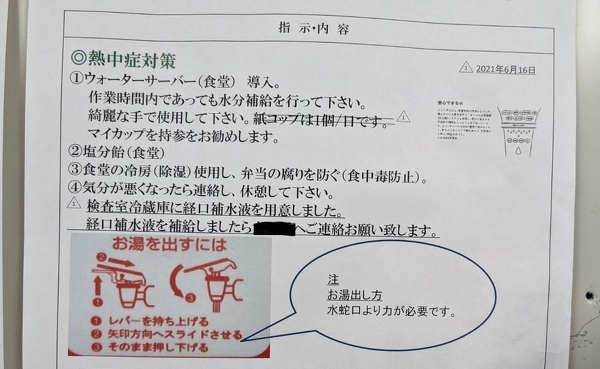 指示・内容
◎熱中症対策
△1 2021年6月16日
①ウォーターサーバー(食堂) 導入。
作業時間内であっても水分補給を行って下さい。
綺麗な手で使用して下さい。紙コップは1個/日です。 △1
マイカップを持参をお勧めします。
安心できるの
②塩分飴(食堂)
③食堂の冷房(除湿)使用し、弁当の腐りを防ぐ(食中毒防止)。
④気分が悪くなったら連絡し、休憩して下さい。
△1 検査室冷蔵庫に経口補水液を用意しました。
経口補水液を補給しましたら へご連絡お願い致します。
お湯を出すには
② ① ③
❶レバーを持ち上げる
❷矢印方向へスライドさせる
❸そのまま押し下げる
注
お湯出し方
水蛇口より力が必要です。